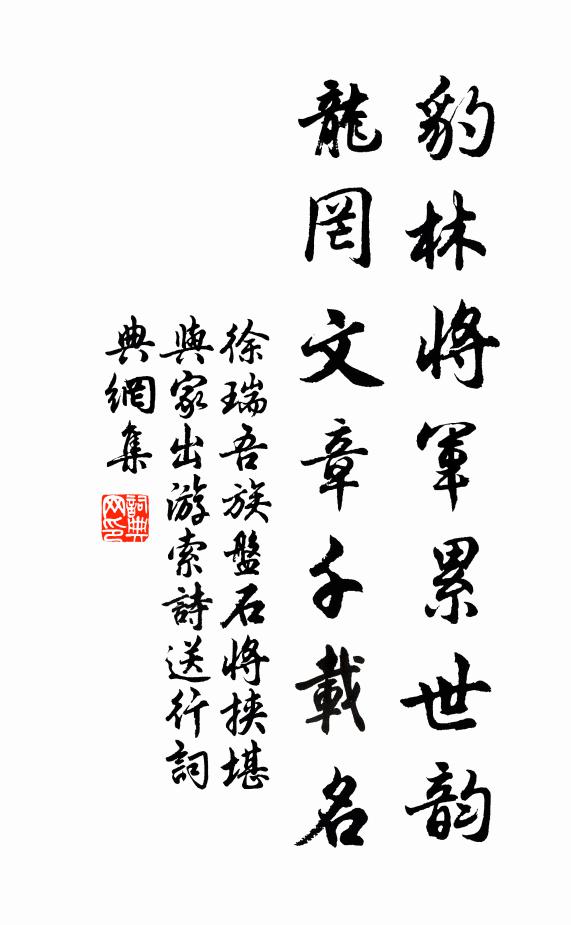 豹林將軍累世韵
龍罔文章千載名
徐瑞吾族盤石將挾堪
與家出游索詩送行詞
典網集
詞典
网印